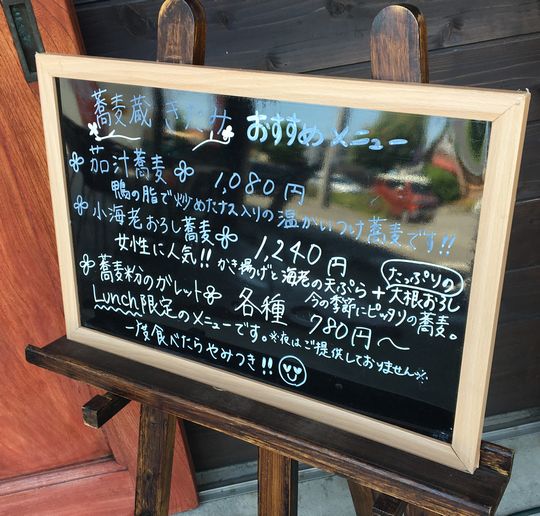 蕎麦蔵 きたみ おすすめメニュー
茄汁蕎麦 1,080円
鴨の脂で炒めたナス入りの温かいつけ蕎麦です!!
小海老おろし蕎麦 1,240円
女性に人気!! かき揚げと海老の天ぷら + たっぷりの大根おろし
今の季節にピッタリの蕎麦。
蕎麦粉のガレット 各種 780円〜
Lunch限定のメニューです。※夜はご提供しておりません※
一度食べたらやみつき!!